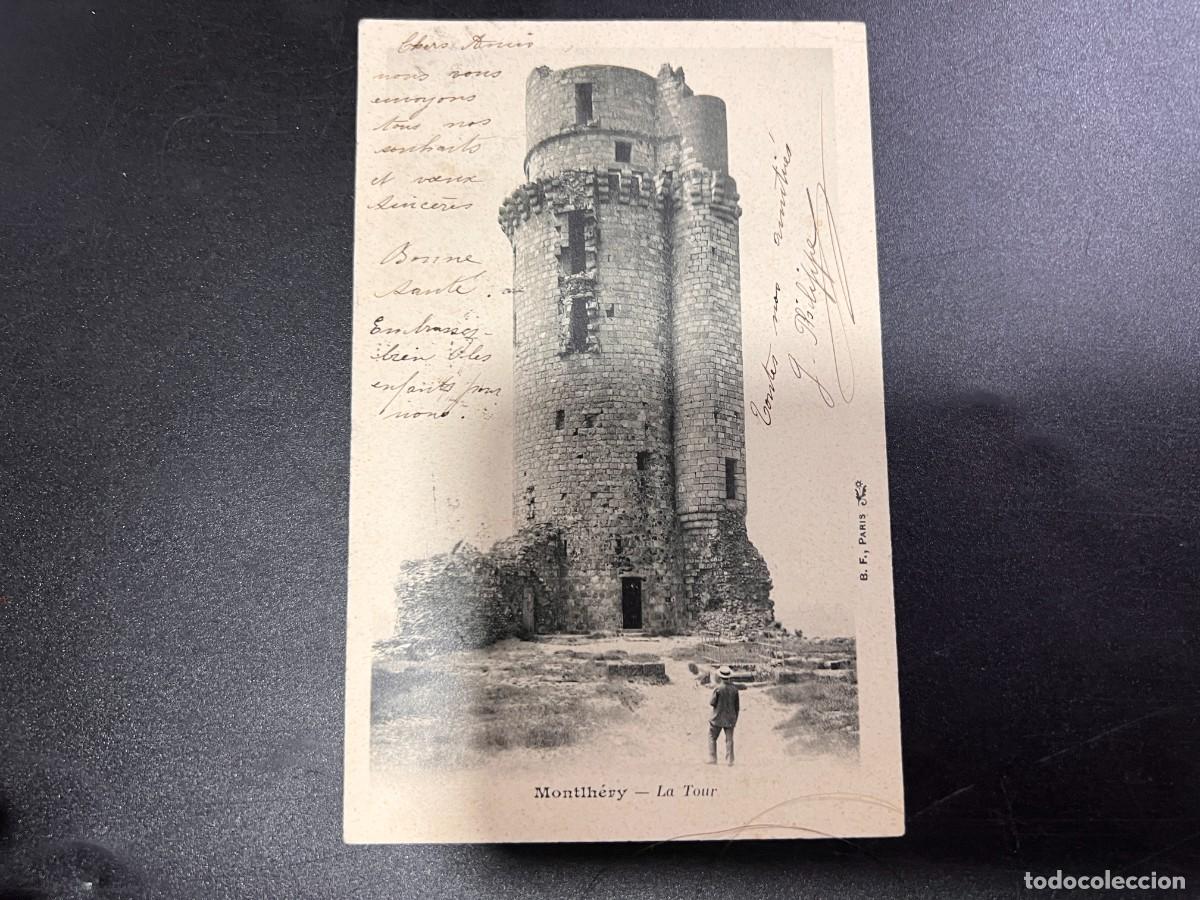 Chers Amis
nous vous
envoyons
tous nos
souhaits
et vœux
sincères
Bonne
santé.
Embrassez-
bien les
enfants pour
nous.
Toutes nos amitiés
G. Philippe
B. F., PARIS
Montlhéry — La Tour
todocoleccion